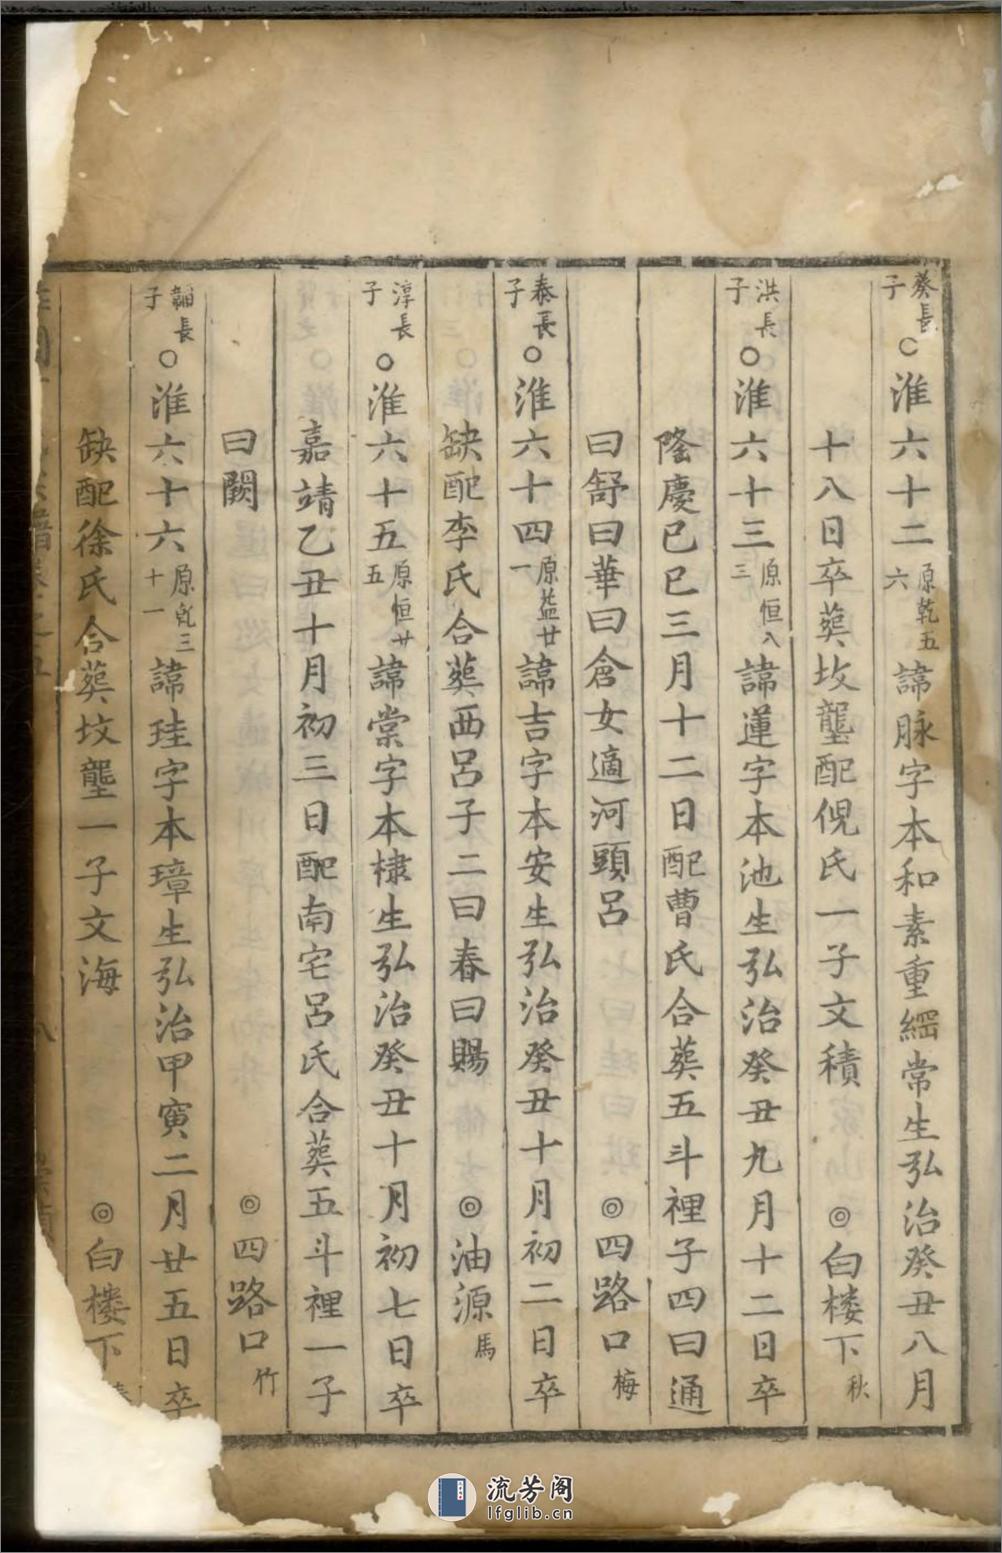 葵長子○淮六十二原乾五六諱脉字本和素重綱常生弘治癸丑八月
十八日卒葬坟壟配倪氏一子文積◎白楼下秋
洪長子○淮六十三原恒八三諱蓮字本池生弘治癸丑九月十二日卒
隆慶已已三月十二日配曹氏合葬五斗裡子四曰通
曰舒曰華曰倉女適河頭呂◎四路口梅
泰長子○淮六十四原益廿一諱吉字本安生弘治癸丑十月初二日卒
缺配李氏合葬西呂子二曰春曰賜◎油源馬
淳長子○淮六十五原恒廿五諱棠字本棣生弘治癸丑十月初七日卒
嘉靖乙丑十月初三日配南宅呂氏合葬五斗裡一子
曰闕◎四路口竹
長子○淮六十六原乹三十一諱珪字本璋生弘治甲寅二月廿五日卒
缺配徐氏合葬坟壟一子文海◎白楼下
譜卷之五 八
流芳阁
lfglib.cn